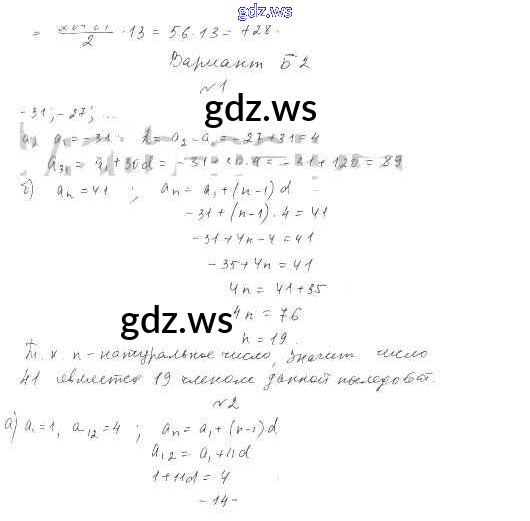 gdz.ws
= /2 · 13 = 56 · 13 = 728.
Вариант Б2
№1
-31; -27; ...
gdz.ws
a₁ = -31 d = a₂ - a₁ = -27 + 31 = 4
a₃₁ = a₁ + 30d = -31 + 30·4 = -31 + 120 = 89
б) aₙ = 41 ; aₙ = a₁ + (n-1)d
-31 + (n-1)·4 = 41
-31 + 4n - 4 = 41
-35 + 4n = 41
4n = 41 + 35
gdz.ws
4n = 76
n = 19.
Т. к. n - натуральное число, значит число
41 является 19 членом данной последоват.
№2
а) a₁ = 1, a₁₂ = 4 ; aₙ = a₁ + (n-1)d
a₁₂ = a₁ + 11d
1 + 11d = 4
- 14 -
gdz.ws